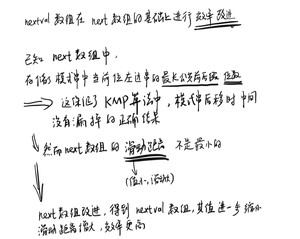 nextval 数组在 next 数组的基础上进行 效率改进
已知 next 数组中,
存储了模式串中当前位左边串的最长公共前后缀 位数
⇒ 这保证了 KMP算法中, 模式串后移时 中间
没有漏掉的正确结果
然而 next 数组的 滑动距离 不是最小的
next 数组改进, 得到 nextval 数组, 其值进一步缩小
滑动距离增大, 效率更高